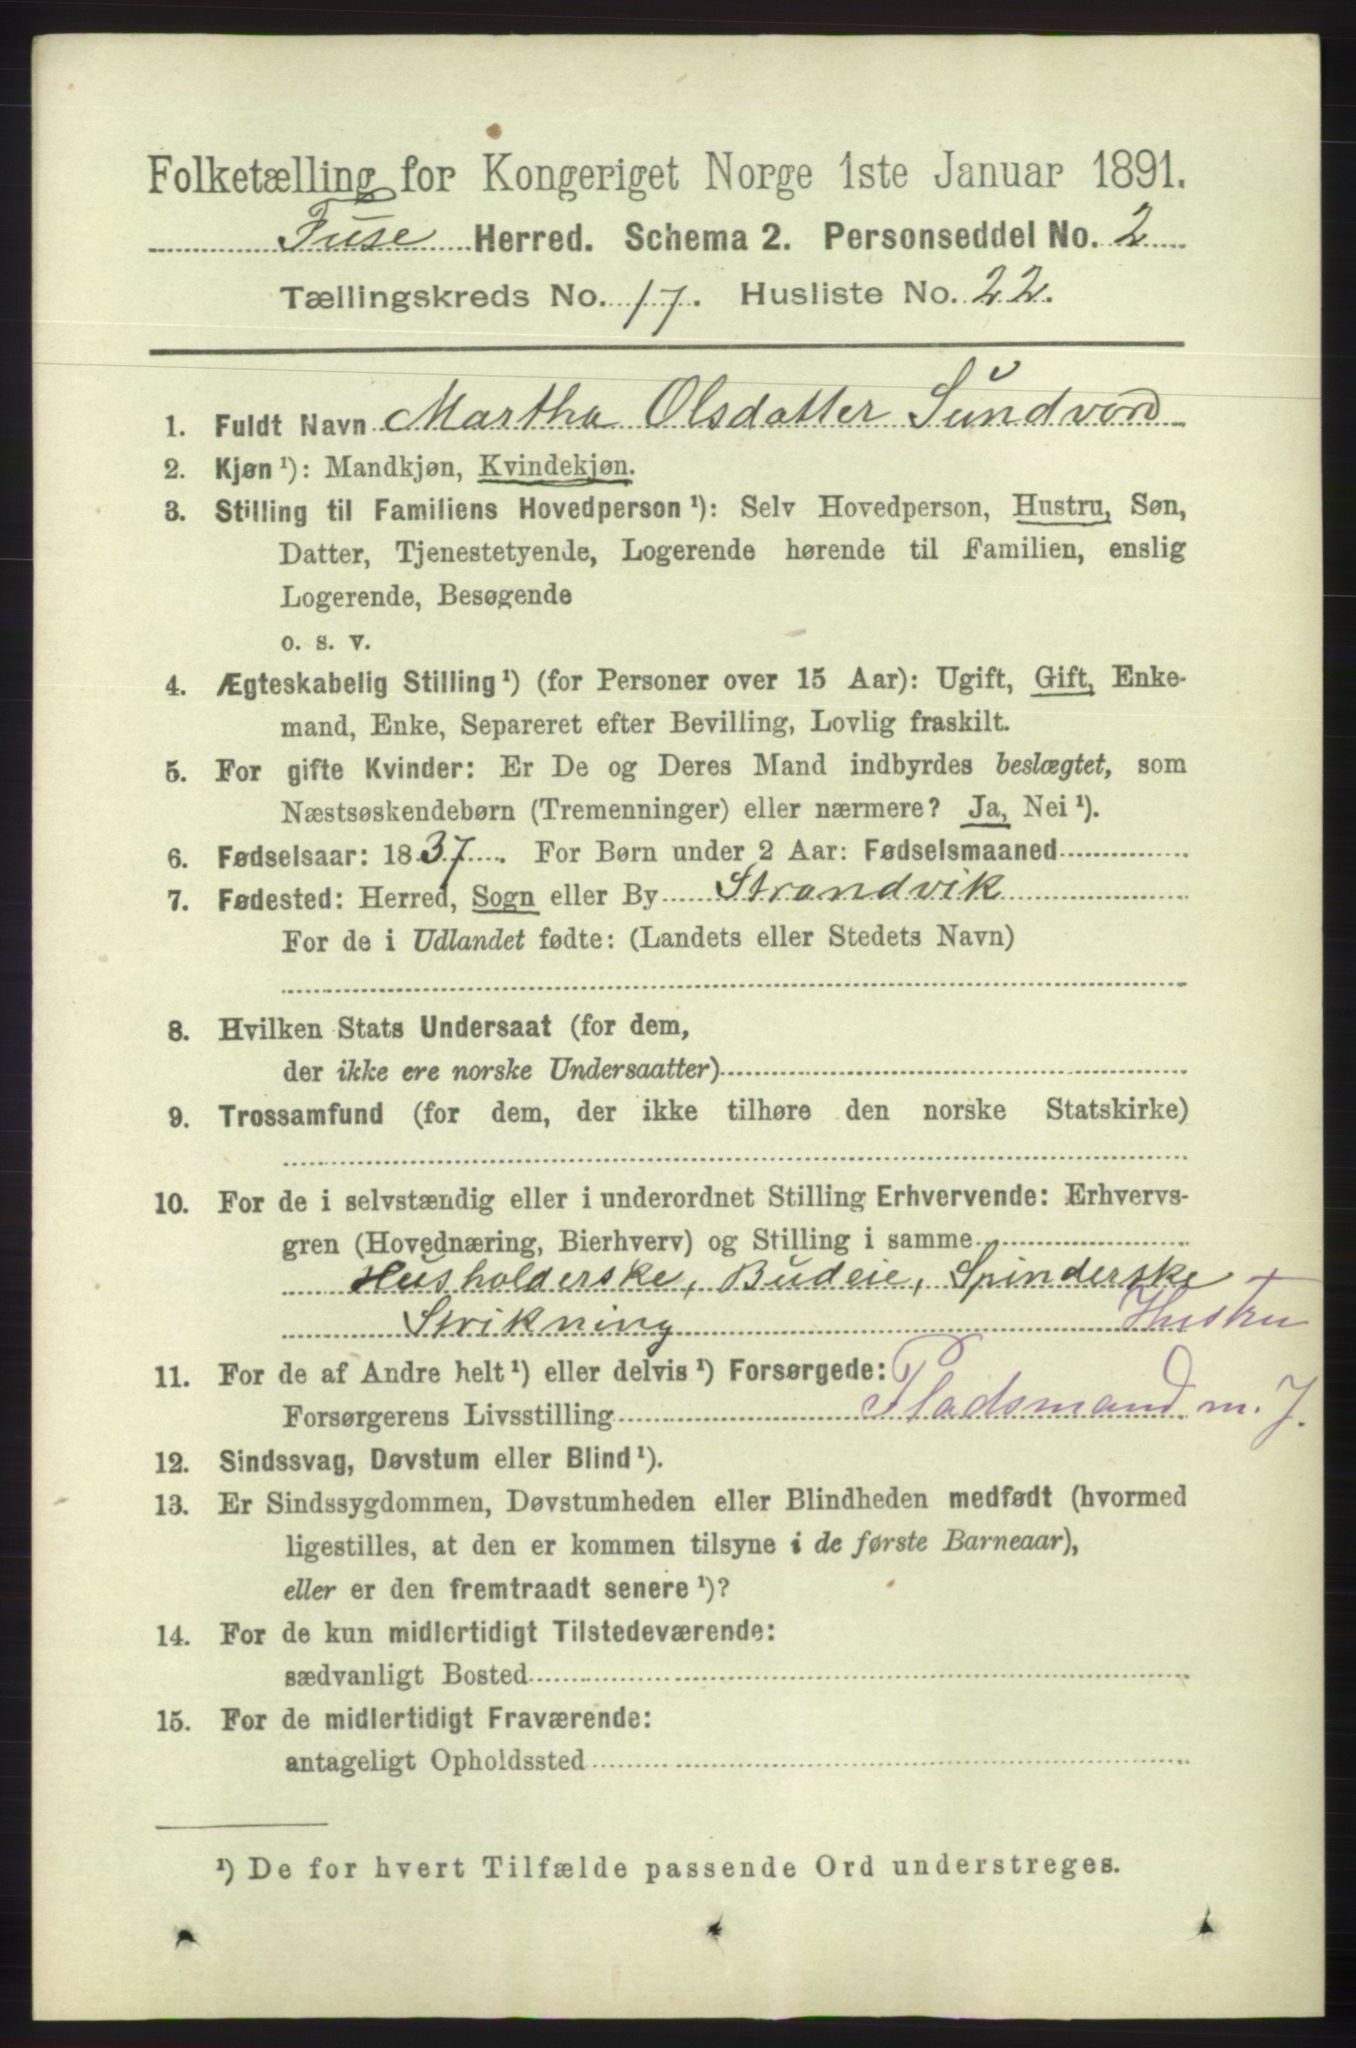 Folketælling for Kongeriget Norge 1ste Januar 1891.
Fuse Herred. Schema 2. Personseddel No. 2
Tællingskreds No. 17. Husliste No. 22.
1. Fuldt Navn Martha Olsdatter Sundvord
2. Kjøn ¹): Mandkjøn, Kvindekjøn.
3. Stilling til Familiens Hovedperson ¹): Selv Hovedperson, Hustru, Søn,
Datter, Tjenestetyende, Logerende hørende til Familien, enslig
Logerende, Besøgende
o. s. v.
4. Ægteskabelig Stilling ¹) (for Personer over 15 Aar): Ugift, Gift, Enke-
mand, Enke, Separeret efter Bevilling, Lovlig fraskilt.
5. For gifte Kvinder: Er De og Deres Mand indbyrdes beslægtet, som
Næstsøskendebørn (Tremenninger) eller nærmere? Ja, Nei ¹).
6. Fødselsaar: 1837. For Børn under 2 Aar: Fødselsmaaned
7. Fødested: Herred, Sogn eller By Strandvik
For de i Udlandet fødte: (Landets eller Stedets Navn)
8. Hvilken Stats Undersaat (for dem,
der ikke ere norske Undersaatter)
9. Trossamfund (for dem, der ikke tilhøre den norske Statskirke)
10. For de i selvstændig eller i underordnet Stilling Erhvervende: Erhvervs-
gren (Hovednæring, Bierhverv) og Stilling i samme
Husholderske, Budeie, Spinderske
Strikning Hustru
11. For de af Andre helt ¹) eller delvis ¹) Forsørgede:
Forsørgerens Livsstilling Pladsmand m. J.
12. Sindssvag, Døvstum eller Blind ¹).
13. Er Sindssygdommen, Døvstumheden eller Blindheden medfødt (hvormed
ligestilles, at den er kommen tilsyne i de første Barneaar),
eller er den fremtraadt senere ¹)?
14. For de kun midlertidigt Tilstedeværende:
sædvanligt Bosted
15. For de midlertidigt Fraværende:
antageligt Opholdssted
¹) De for hvert Tilfælde passende Ord understreges.